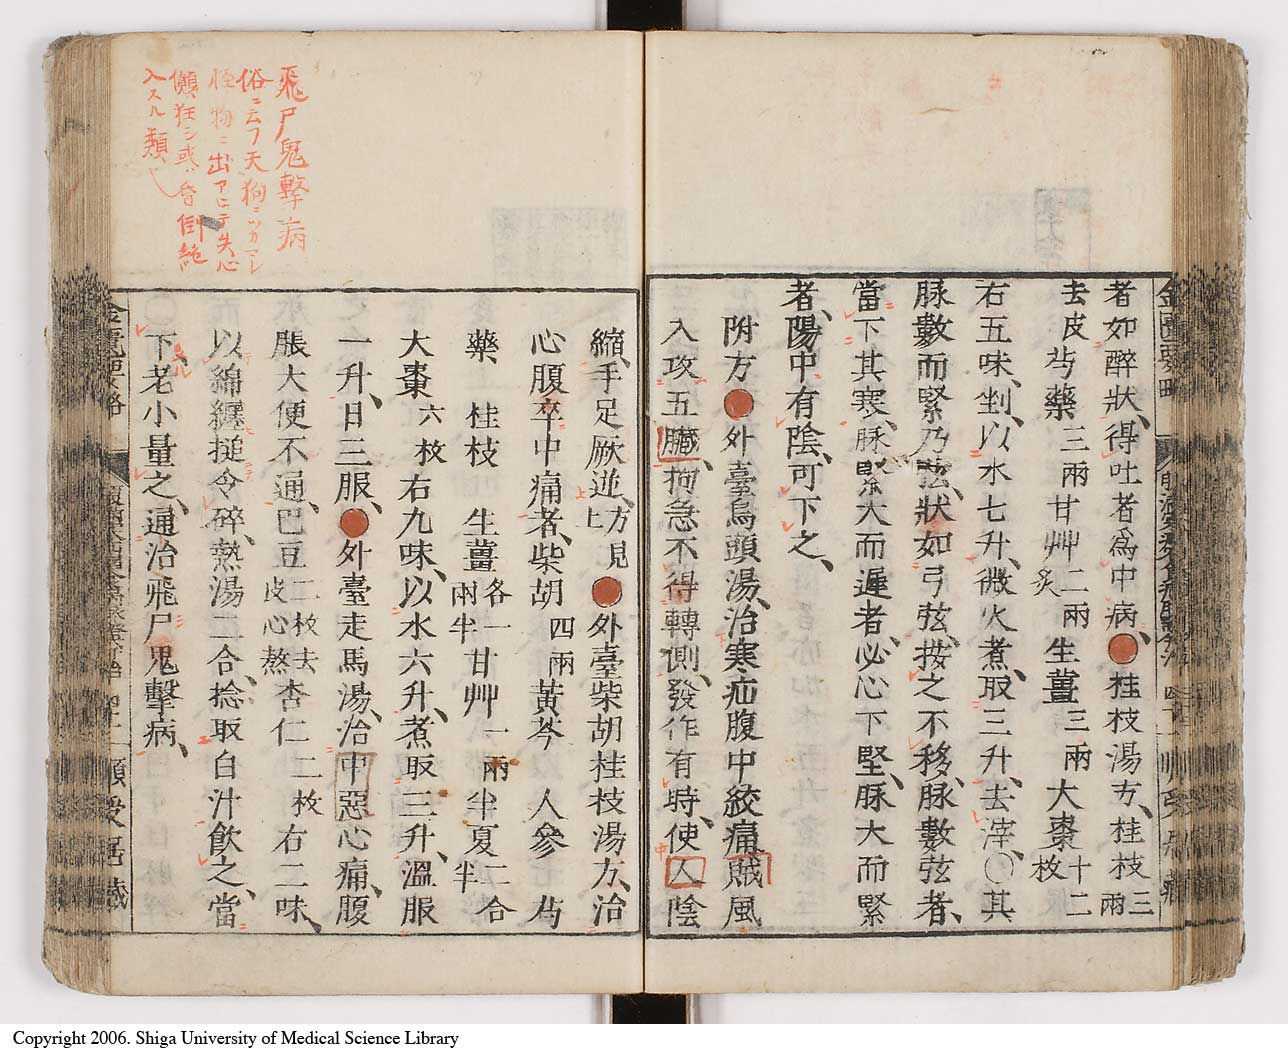 者如醉狀、得吐者爲中病、●桂枝湯方、桂枝三兩
去皮芍藥三兩甘艸二兩炙生薑三兩大棗十二枚
右五味、剉、以水七升、微火煮、取三升、去滓、〇其
脉數而緊乃弦、狀如弓弦、按之不移、脉數弦者、
當下其寒、脉緊大而遲者、必心下堅、脉大而緊
者、陽中有陰、可下之、
附方●外臺烏頭湯、治寒疝腹中絞痛賊風
入攻五臟、拘急不得轉側、發作有時、使人陰
縮、手足厥逆、方見上●外臺柴胡桂枝湯方、治
心腹卒中痛者、柴胡四兩黃芩 人參 芍
藥 桂枝 生薑各一兩半甘艸一兩半夏二合半
大棗六枚右九味、以水六升、煮取三升、溫服
一升、日三服、●外臺走馬湯、治中惡心痛、腹
脹大便不通、巴豆二枚去皮心熬杏仁二枚右二味、
以綿纏搥令碎、熱湯二合、捻取白汁飲之、當
下、老小量之、通治飛尸鬼擊病、
飛尸鬼擊病
俗ニ云フ天狗ニツカマレ
怪物ニ出アヒテ失心
癲狂シ或ハ昏倒絶
入スル類也
金匱要略
Copyright 2006. Shiga University of Medical Science Library